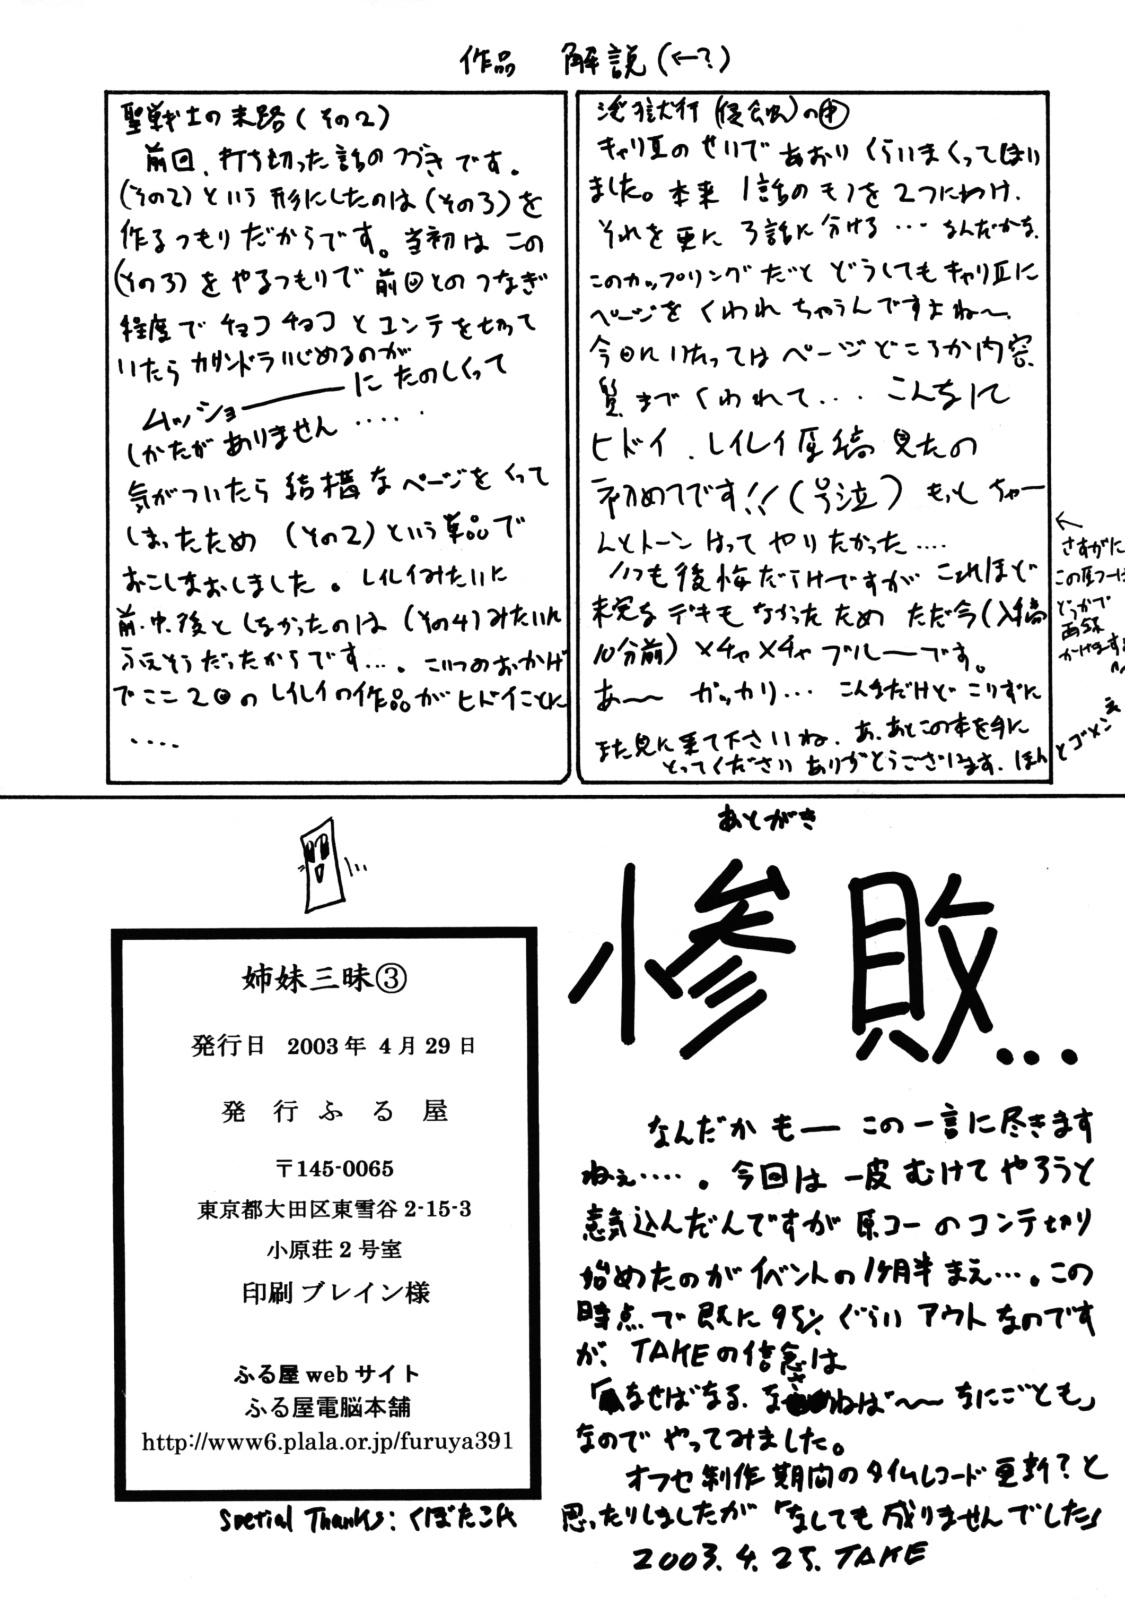 作品 解説(←?)
聖戦士の末路(その2)
前回、打ち切った話のつづきです。
(その2)という形にしたのは(その3)を
作るつもりだからです。当初はこの
(その3)をやるつもりで前回とのつなぎ
程度でチョコチョコとコンテを切って
いたらカサンドラいじめるのが
ムッショーーーーーにたのしくって
しかたがありません・・・・・
気がついたら結構なページをくって
しまったため(その2)という単品で
おこしなおしました。レイレイみたいに
前・中・後としなかったのは(その4)みたいに
ふえそうだったからです…。こいつのおかげ
でここ2回のレイレイの作品がヒドイことに
....
淫獄行(侵食)の中
キャリ豆のせいであおりくらいまくってはい
ました。本来1話のモノを2つにわけ、
それを更に3話に分ける…なんだかな。
このカップリングだとどうしてもキャリ豆に
ページをくわれちゃうんですよね〜。
今回にいたってはページどころか内容
質までくわれて...こんなに
ヒドイ、レイレイ原稿見たの
初めてです!!(号泣)もっとちゃー
んとトーンはってやりたかった....
いつも後悔だらけですがこれほど
未完なデキもなかったためただ今(入稿
10分前)メチャメチャブルーです。
あ〜〜ガッカリ...こんなだけどこりずに
また見に来て下さいね。あ、あとこの本を手に
とってくださいありがとうございます。ほんとゴメンネ
←
さすがに
この原コーは
どっかで
再録
かけますよ
あとがき
惨敗...
なんだかもーこの一言に尽きます
ねぇ.....。今回は一皮むけてやろうと
意気込んだんですが原コーのコンテ切り
始めたのがイベントの1ヶ月半まえ...。この
時点で既に95%ぐらいアウトなのです
が、TAKEの信念は
「なせばなる、なさねば〜〜なにごとも」
なのでやってみました。
オフセ制作期間のタイムレコード更新?と
思ったりしましたが「なしても成りませんでした」
2003.4.25.TAKE
姉妹三昧③
発行日 2003年 4月29日
発 行 ふ る 屋
〒145-0065
東京都大田区東雪谷2-15-3
小原荘2号室
印刷 ブレイン様
ふる屋webサイト
ふる屋電脳本舗
http://www6.plala.or.jp/furuya391
Special Thanks: くぼたこん